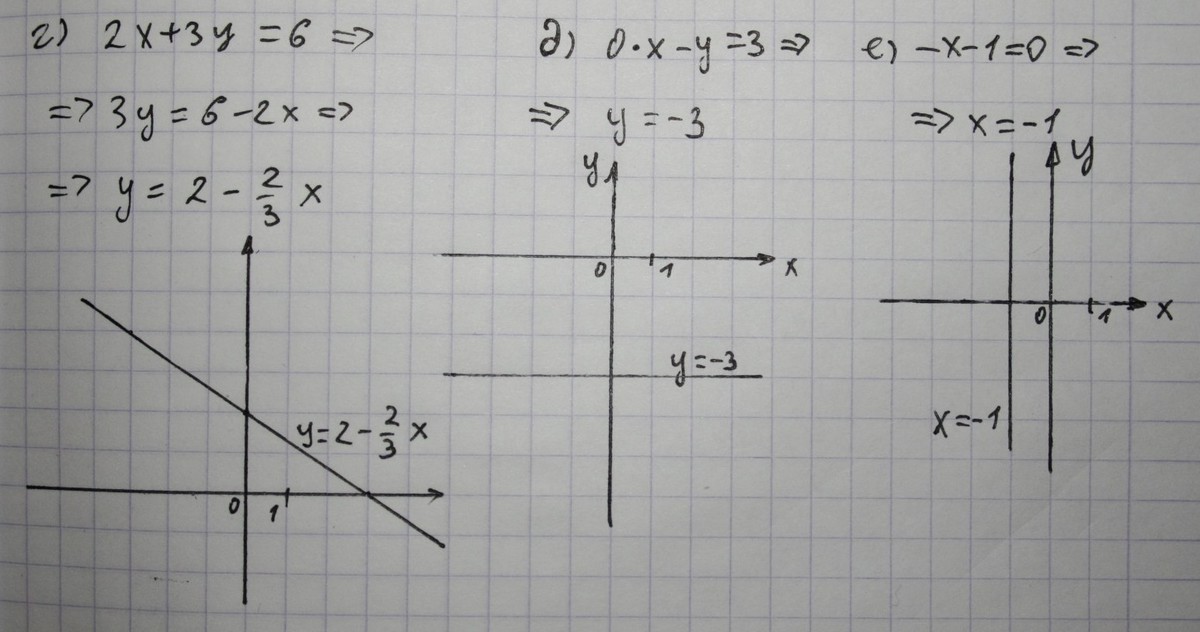 г) 2x+3y=6 =>
=> 3y=6-2x =>
=> y=2-2/3 x
y=2-2/3 x
0 1
д) 0·x-y=3 =>
=> y=-3
y
0 1 x
y=-3
е) -x-1=0 =>
=> x=-1
y
0 1 x
x=-1